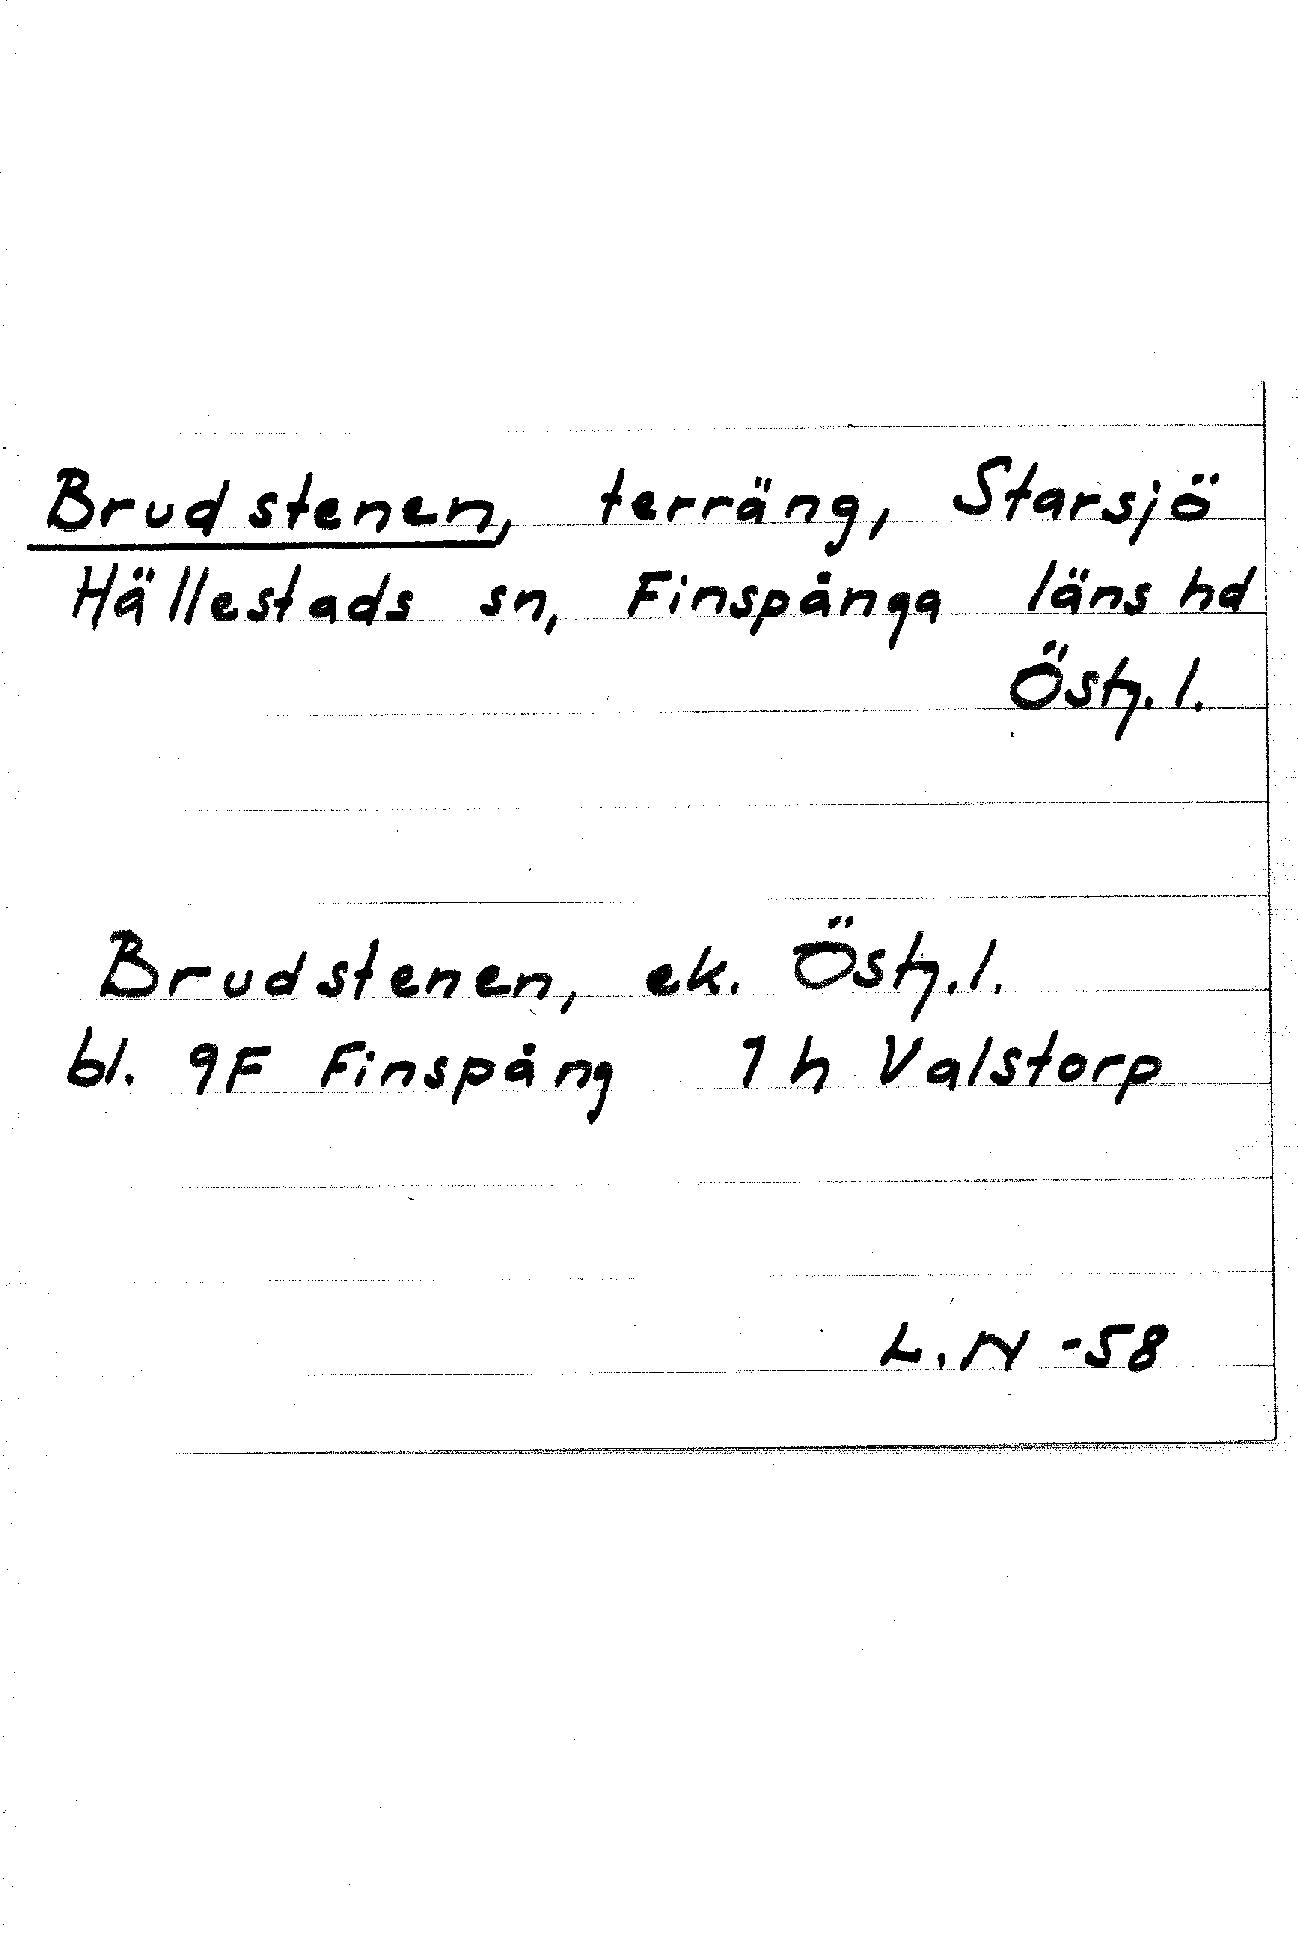 Brudstenen, terräng, Starsjö
Hällestads sn, Finspånga läns hd
Östg. l.
Brudstenen, ek. Östg. l.
bl. 9F Finspång 1h Valstorp
L.N -58